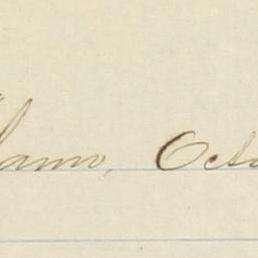 lamo, Octo